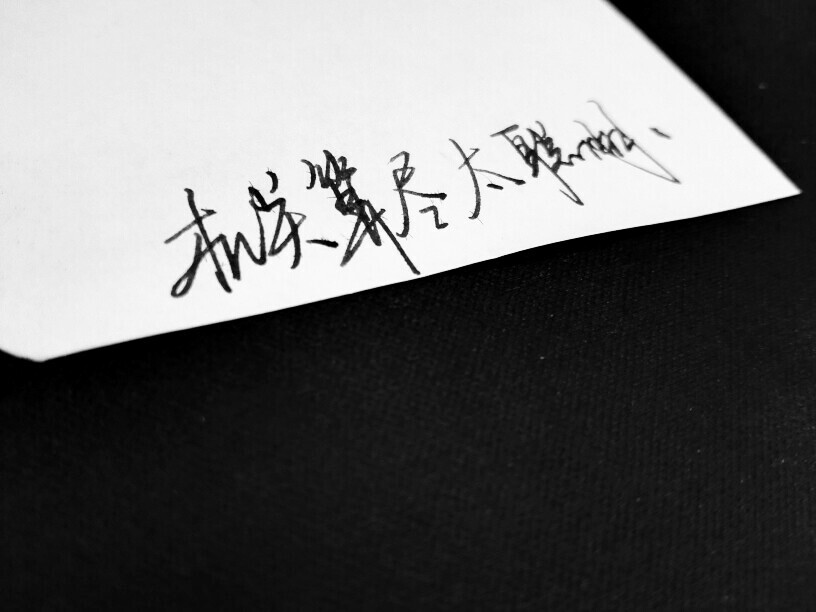 机关算尽太聪明.